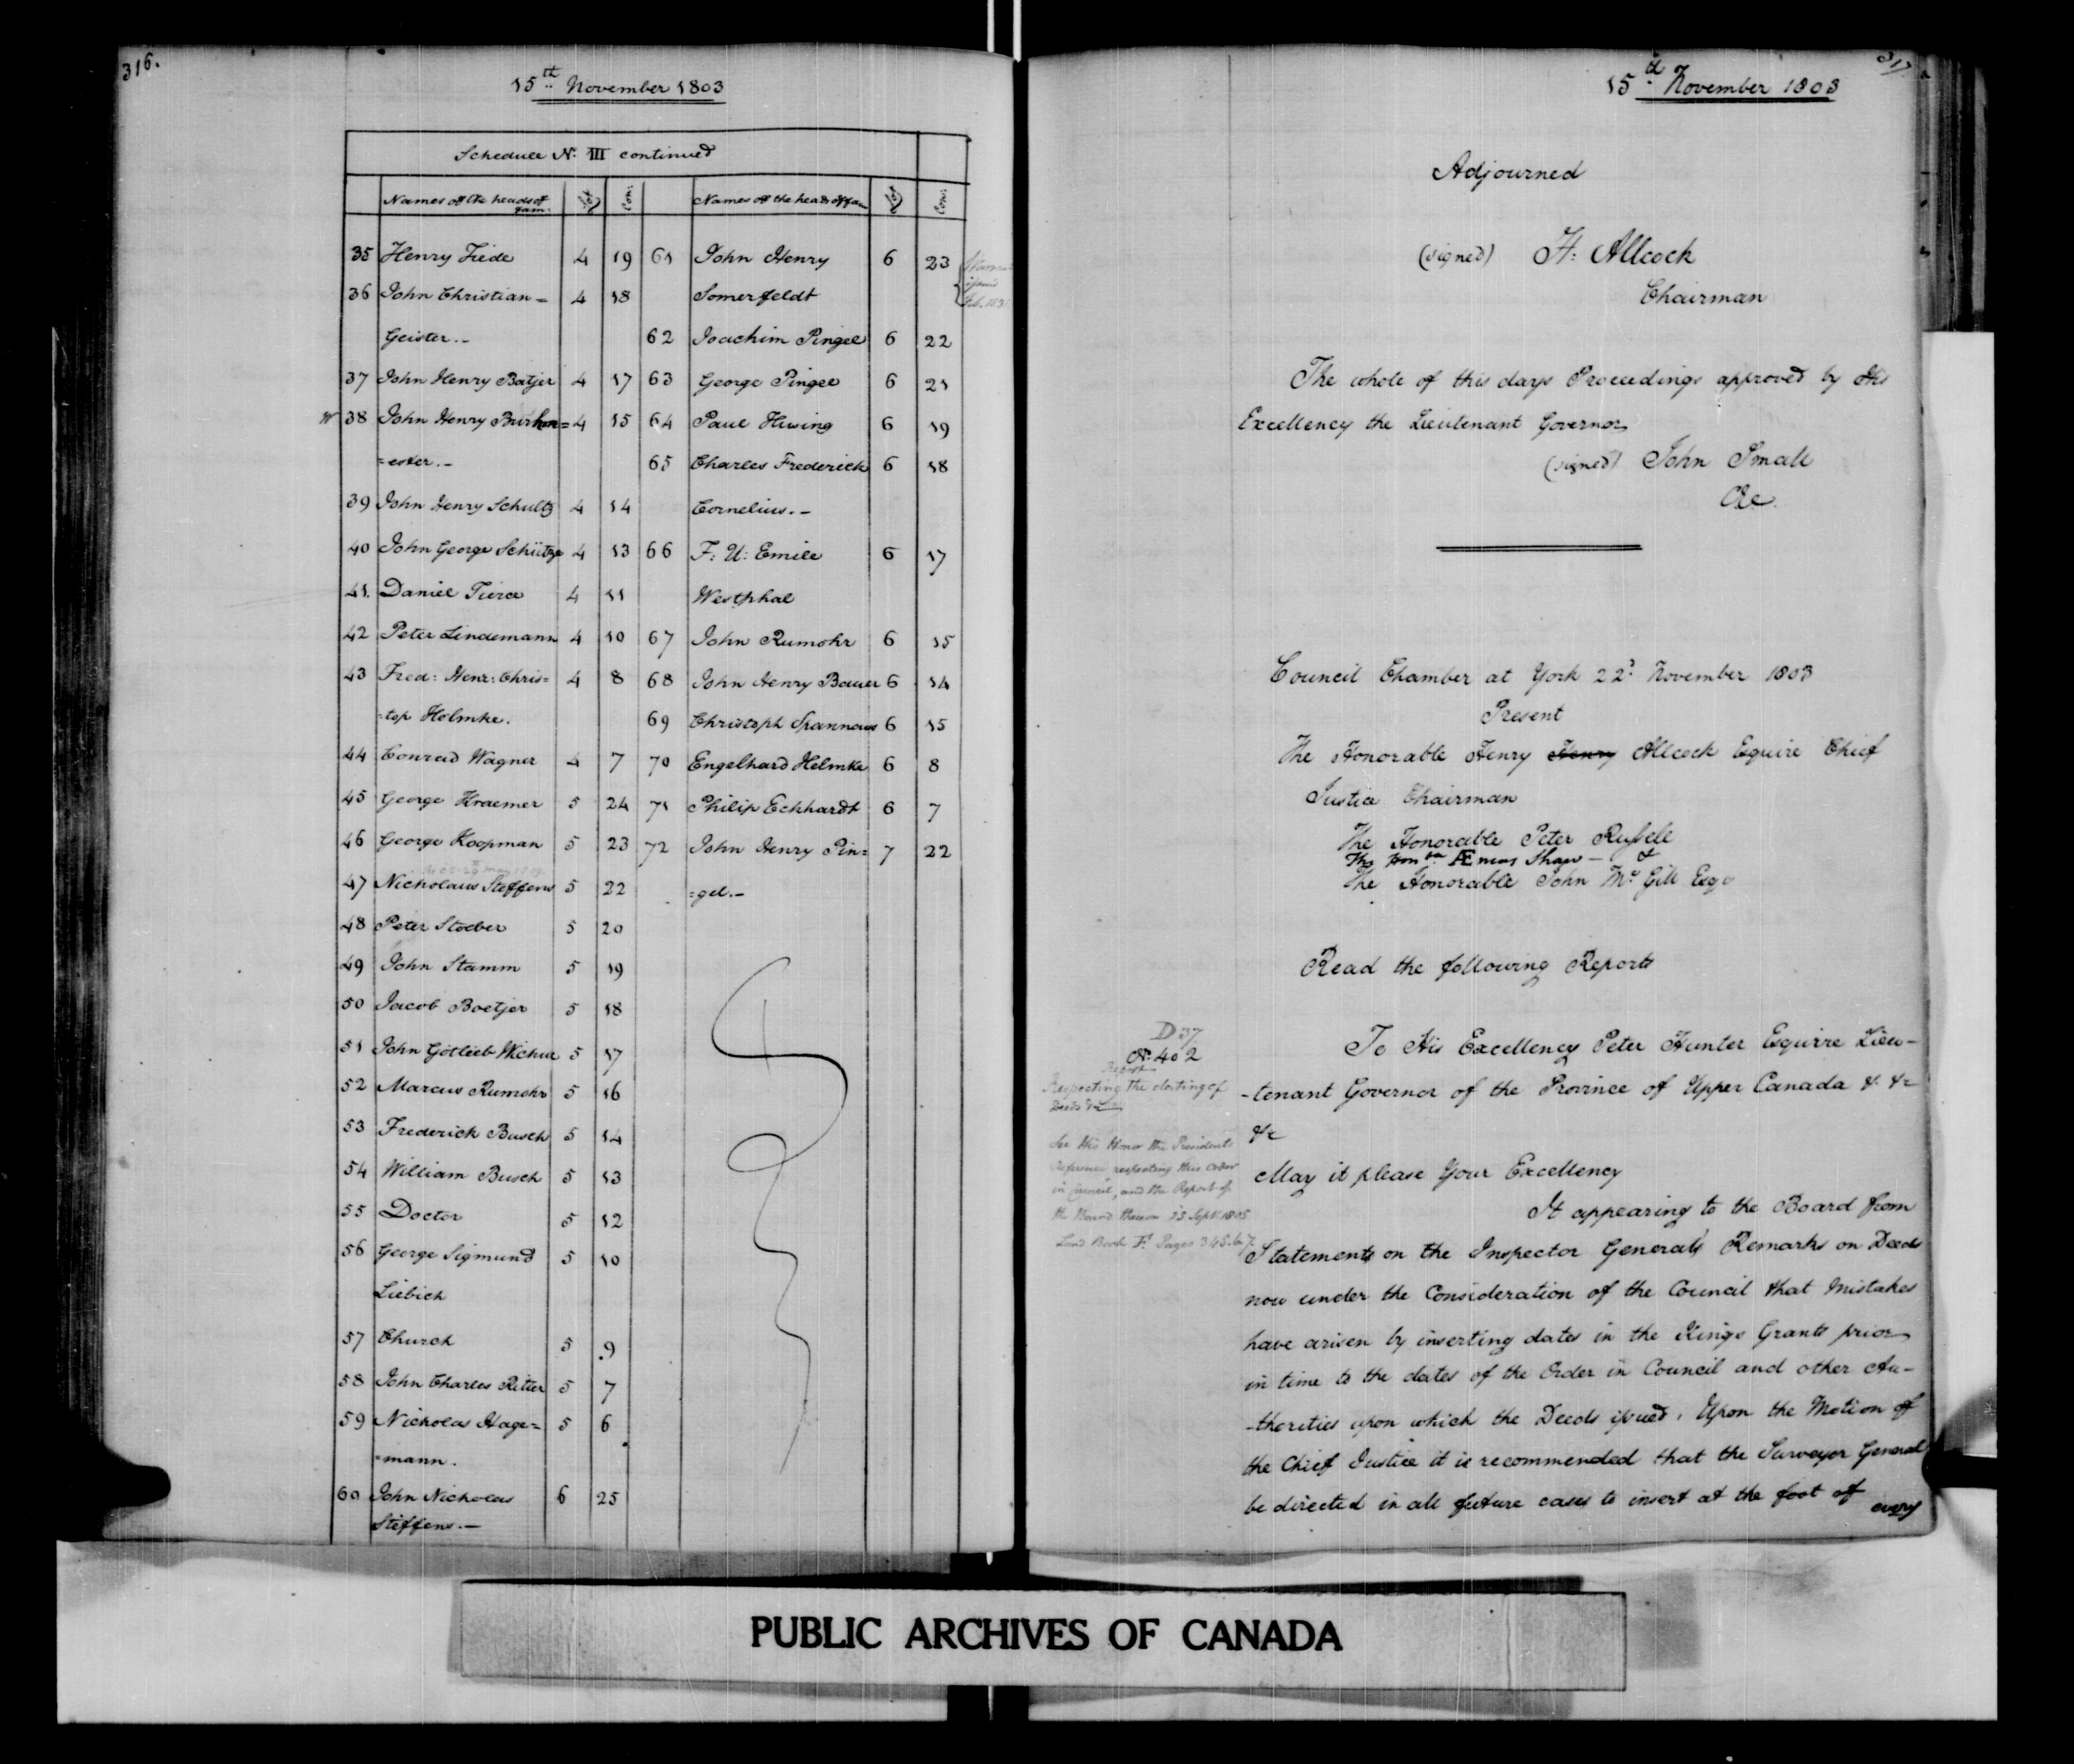 316.
15th November 1803
Schedule No. III continued
Names of the heads of fam: Lot Con: Names of the heads of fam Lot Con:
35 Henry Tiede 4 19 61 John Henry 6 23
36 John Christian= 4 18 Somerfeldt
Geister.- 62 Joachim Pingel 6 22
37 John Henry Batjer 4 17 63 George Pingel 6 21
38 John Henry Burken= 4 15 64 Paul Huing 6 19
=ester.- 65 Charles Frederick 6 18
39 John Henry Schultz 4 14 Cornelius.-
40 John George Schütze 4 13 66 F: U: Emile 6 17
41. Daniel Tiers 4 11 Westphal
42 Peter Lindemann 4 10 67 John Rumohr 6 15
43 Fred: Henr: Chris= 4 8 68 John Henry Bauer 6 14
=top Holmke. 69 Christoph Spannaus 6 15
44 Conrad Wagner 4 7 70 Engelhard Helmke 6 8
45 George Kraemer 5 24 71 Philip Eckhardt 6 7
46 George Koopman 5 23 72 John Henry Pin= 7 22
47 Nicholaus Steffens 5 22 =gel.-
48 Peter Stoeber 5 20
49 John Stamm 5 19
50 Jacob Boetjer 5 18
51 John Gotlieb Wichur 5 17
52 Marcus Rumohr 5 16
53 Frederick Busch 5 14
54 William Busch 5 13
55 Doctor 5 12
56 George Sigmund 5 10
Liebich
57 Church 5 9
58 John Charles Ritter 5 7
59 Nicholas Hage= 5 6
=mann.
60 John Nicholas 6 25
Steffens.-
317
15th November 1803
Adjourned
(signed) H: Allcock
Chairman
The whole of this days Proceedings approved by His
Excellency the Lieutenant Governor
(signed) John Small
CEC.
Council Chamber at York 22d November 1803
Present
The Honorable Henry Henry Allcock Esquire Chief
Justice Chairman
The Honorable Peter Russell
The Honble Æneas Shaw - &
The Honorable John McGill Esqr
Read the following Reports
D 37
No. 402
Report
Respecting the dating of
Deeds &c
See His Honor the Presidents
Reference respecting this Order
in Council, and the Report of
the Board thereon 13 Septr 1805
Land Book F. Pages 345.6.7.
To His Excellency Peter Hunter Esquire Lieu-
-tenant Governor of the Province of Upper Canada &. &c
&c
May it please Your Excellency
It appearing to the Board from
Statements on the Inspector General's Remarks on Deeds
now under the Consideration of the Council that Mistakes
have arisen by inserting dates in the Kings Grants prior
in time to the dates of the Order in Council and other Au-
-thorities upon which the Deeds issued, Upon the Motion of
the Chief Justice it is recommended that the Surveyor General
be directed in all future cases to insert at the foot of every
PUBLIC ARCHIVES OF CANADA